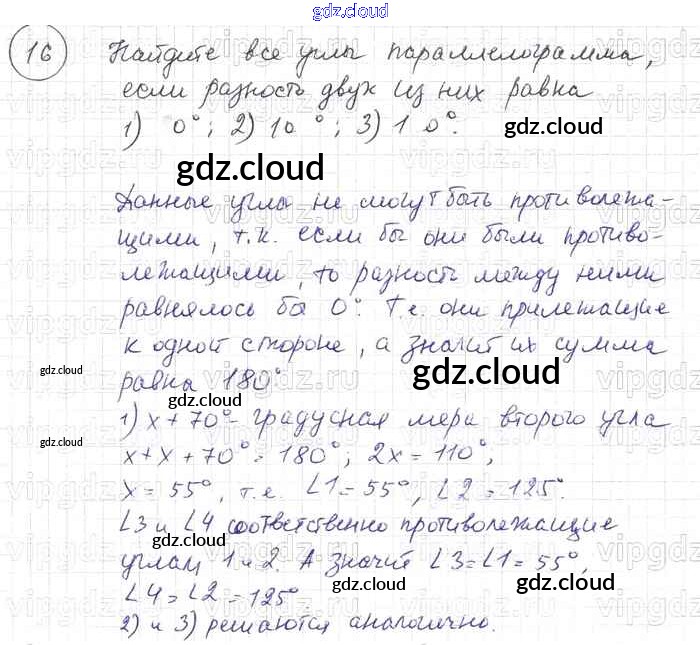 gdz.cloud
16 Найдите все углы параллелограмма,
если разность двух из них равна
1) 0°; 2) 10°; 3) 1 0°.
gdz.cloud
gdz.cloud
Данные углы не могут быть противолежа-
щими, т.к. если бы они были противо-
лежащими, то разность между ними
равнялось бы 0°. Т.е. они прилежащие
к одной стороне, а значит их сумма
равна 180°
gdz.cloud
gdz.cloud
gdz.cloud
1) x + 70° - градусная мера второго угла
x + x + 70° = 180°; 2x = 110°,
gdz.cloud
x = 55°, т.е. ∠1 = 55°, ∠2 = 125°.
∠3 и ∠4 соответственно противолежащие
gdz.cloud
углам 1 и 2. А значит ∠3 = ∠1 = 55°,
∠4 = ∠2 = 125°
gdz.cloud
2) и 3) решаются аналогично.